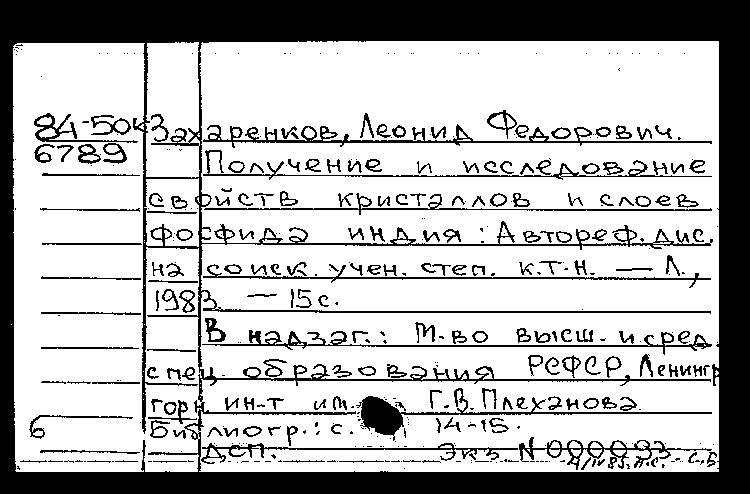 84-50к Захаренков, Леонид Федорович.
6789 Получение и исследование
свойств кристаллов и слоев
фосфида индия : Автореф. дис.
на соиск. учен. степ. к.т.н. — Л.,
1983 — 15 с.
В надзаг.: М-во высш. и сред.
спец. образования РСФСР, Ленингр
горн. ин-т им. Г.В. Плеханова
6 Библиогр.: с. 14-15.
ДСП. Экз N 000093